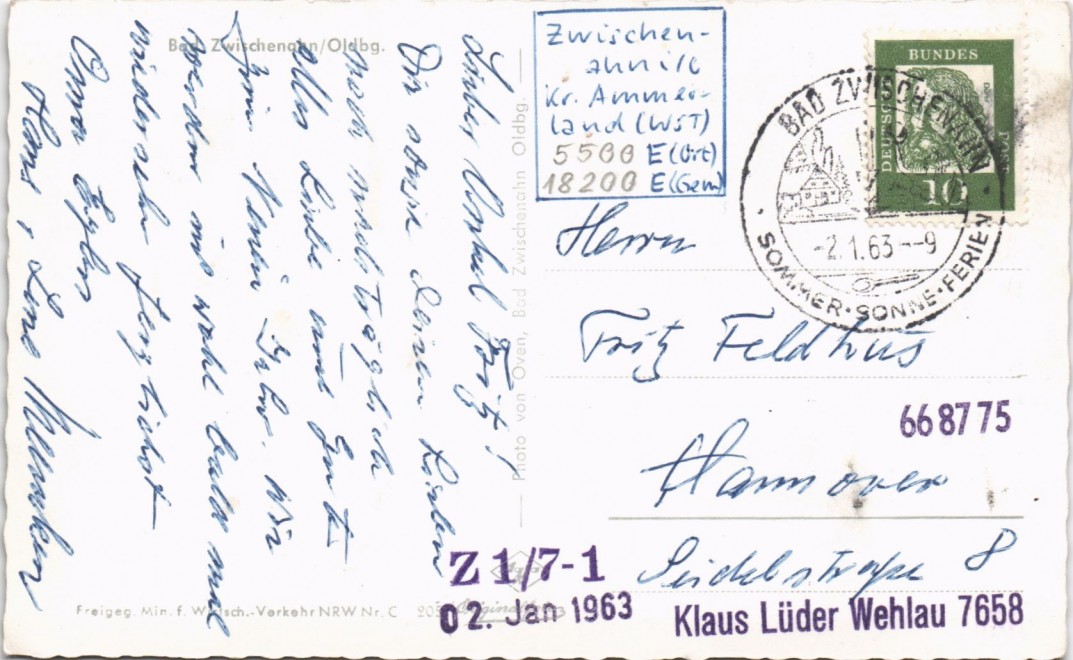 Bad Zwischenahn/Oldbg.
Lieber Onkel Fritz!
Dir sowie Deinen Lieben
noch nachträglich
alles Liebe und Gute
zum Neuen Jahr. Wir
werden uns wohl bald mal
wiedersehn herzlichst
Hans, Lene
Photo von Oven, Bad Zwischenahn Oldbg.
Freigeg. Min. f. Wirtsch.-Verkehr NRW Nr. C
Zwischen-
ahn
Kr. Ammer-
land (WST)
5500 E (Ort)
18200 E (Gem)
BUNDES
DEUTSCHE
POST
10
BAD ZWISCHENAHN
-2.1.63--9
SOMMER·SONNE·FERIEN
Herrn
Fritz Feldhus
668775
Hannover
Seidelstraße 8
Z 1/7-1
02. Jan 1963
Klaus Lüder Wehlau 7658